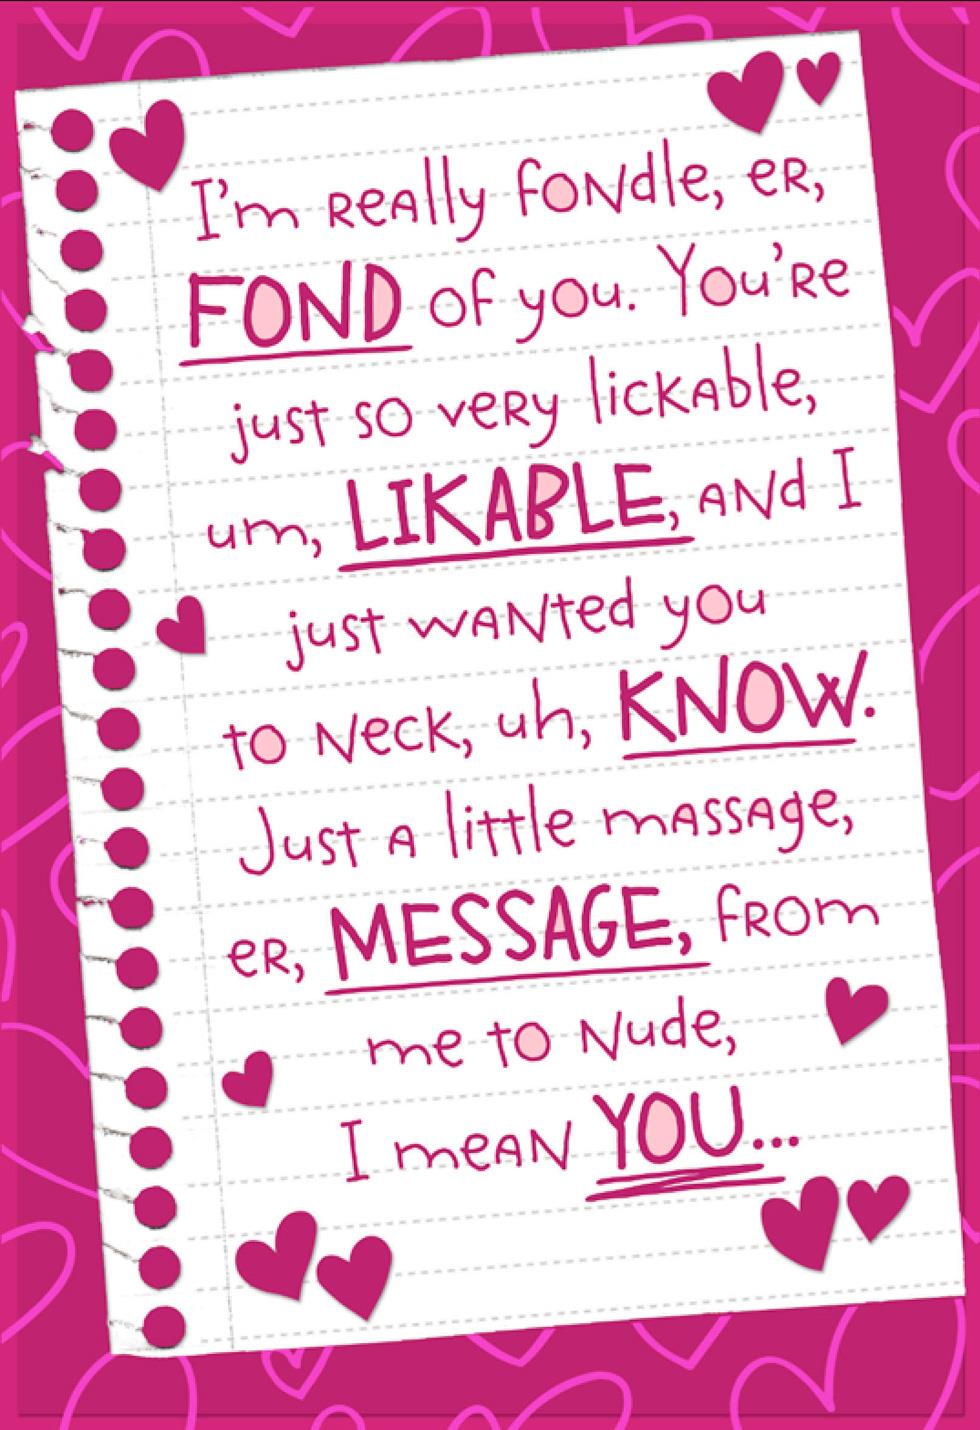 I'm really fondle, er,
FOND of you. You're
just so very lickable,
um, LIKABLE, and I
just wanted you
to neck, uh, KNOW.
Just a little massage,
er, MESSAGE, from
me to nude,
I mean YOU...